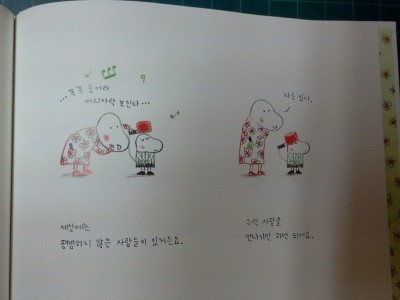 꼭꼭 숨어라
머리카락 보인다...
나도 있다.
세상에는
평범하지 않은 사람들이 있거든요.
그런 사람을
만나기만 하면 되지요.